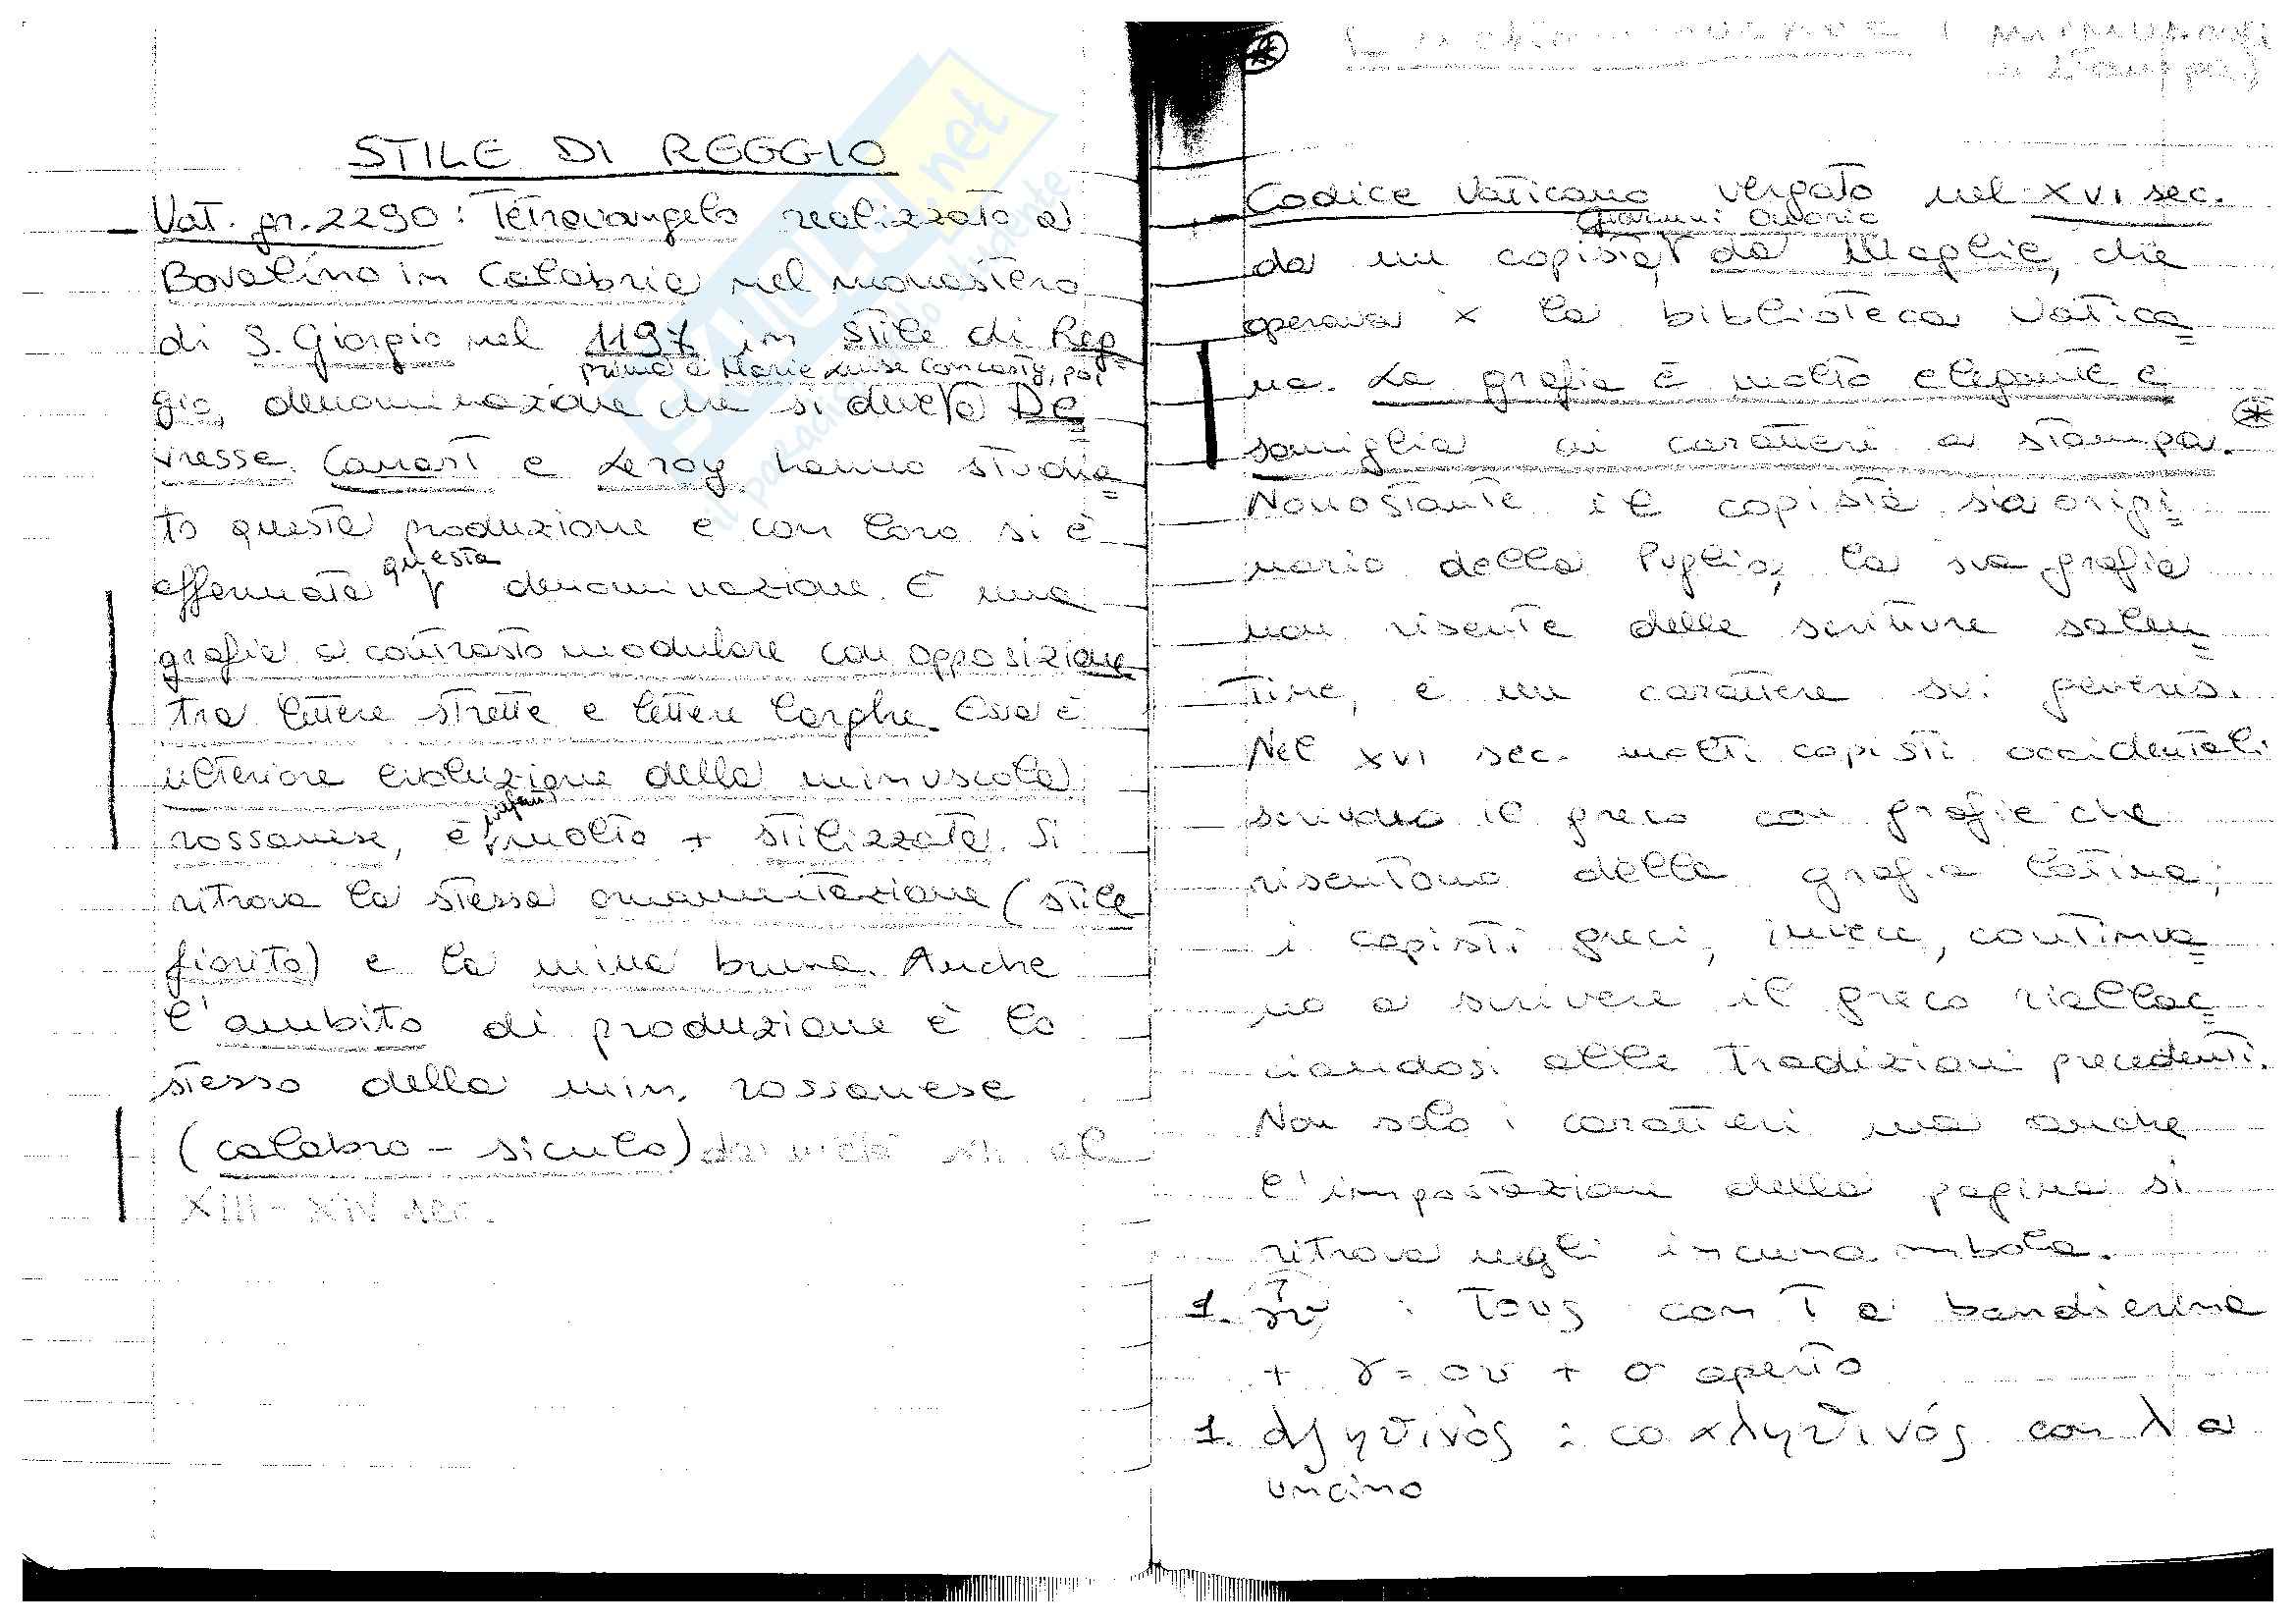 STILE DI REGGIO
Vat. gr. 2290 : Tetravangelo realizzato a
Bovalino in Calabria nel monastero
di S. Giorgio nel 1197 in stile di Reg
prima a Marie Luise Concasty, poi
gio, denominazione che si deve a De
vresse. Canart e Leroy hanno studia=
to questa produzione e con loro si è
questa
affermata denominazione. È una
grafia a contrasto modulare con opposizione
tra lettere strette e lettere larghe. Essa è
ulteriore evoluzione della minuscola
infatti
rossanese, è molto + stilizzata. Si
ritrova la stessa ornamentazione (stile
fiorito) e la mina bruna. Anche
l'ambito di produzione è lo
stesso della min. rossanese
(calabro-siculo) da metà XII al
XIII-XIV sec.
Codice Vaticano vergato nel XVI sec.
Giovanni Onorio
da un copista, da Maglie, che
operava x la biblioteca Vatica=
na. La grafia è molto elegante e
somiglia ai caratteri a stampa.
Nonostante il copista sia origi=
nario della Puglia, la sua grafia
non risente delle scritture salen=
tine, è un carattere sui generis.
Nel XVI sec. molti copisti occidentali
scrivono il greco con grafie che
risentono della grafia latina;
i copisti greci, invece, continua=
no a scrivere il greco riallac=
ciandosi alle tradizioni precedenti.
Non solo i caratteri ma anche
l'impostazione della pagina si
ritrova negli
1. : τους con τ a bandierina
+ ȣ = ου + σ aperto
1. ἀληθινὸς : con λ a
uncino